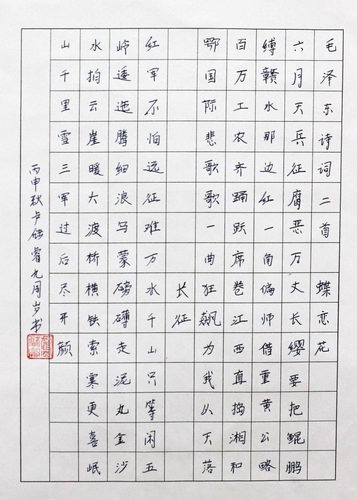 毛泽东诗词二首 蝶恋花
六月天兵征腐恶万丈长缨要把鲲鹏
缚赣水那边红一角偏师借重黄公略
百万工农齐踊跃席卷江西直捣湘和
鄂国际悲歌歌一曲狂飙为我从天落
长征
红军不怕远征难万水千山只等闲五
岭逶迤腾细浪乌蒙磅礴走泥丸金沙
水拍云崖暖大渡桥横铁索寒更喜岷
山千里雪三军过后尽开颜
丙申秋 睿九周岁书